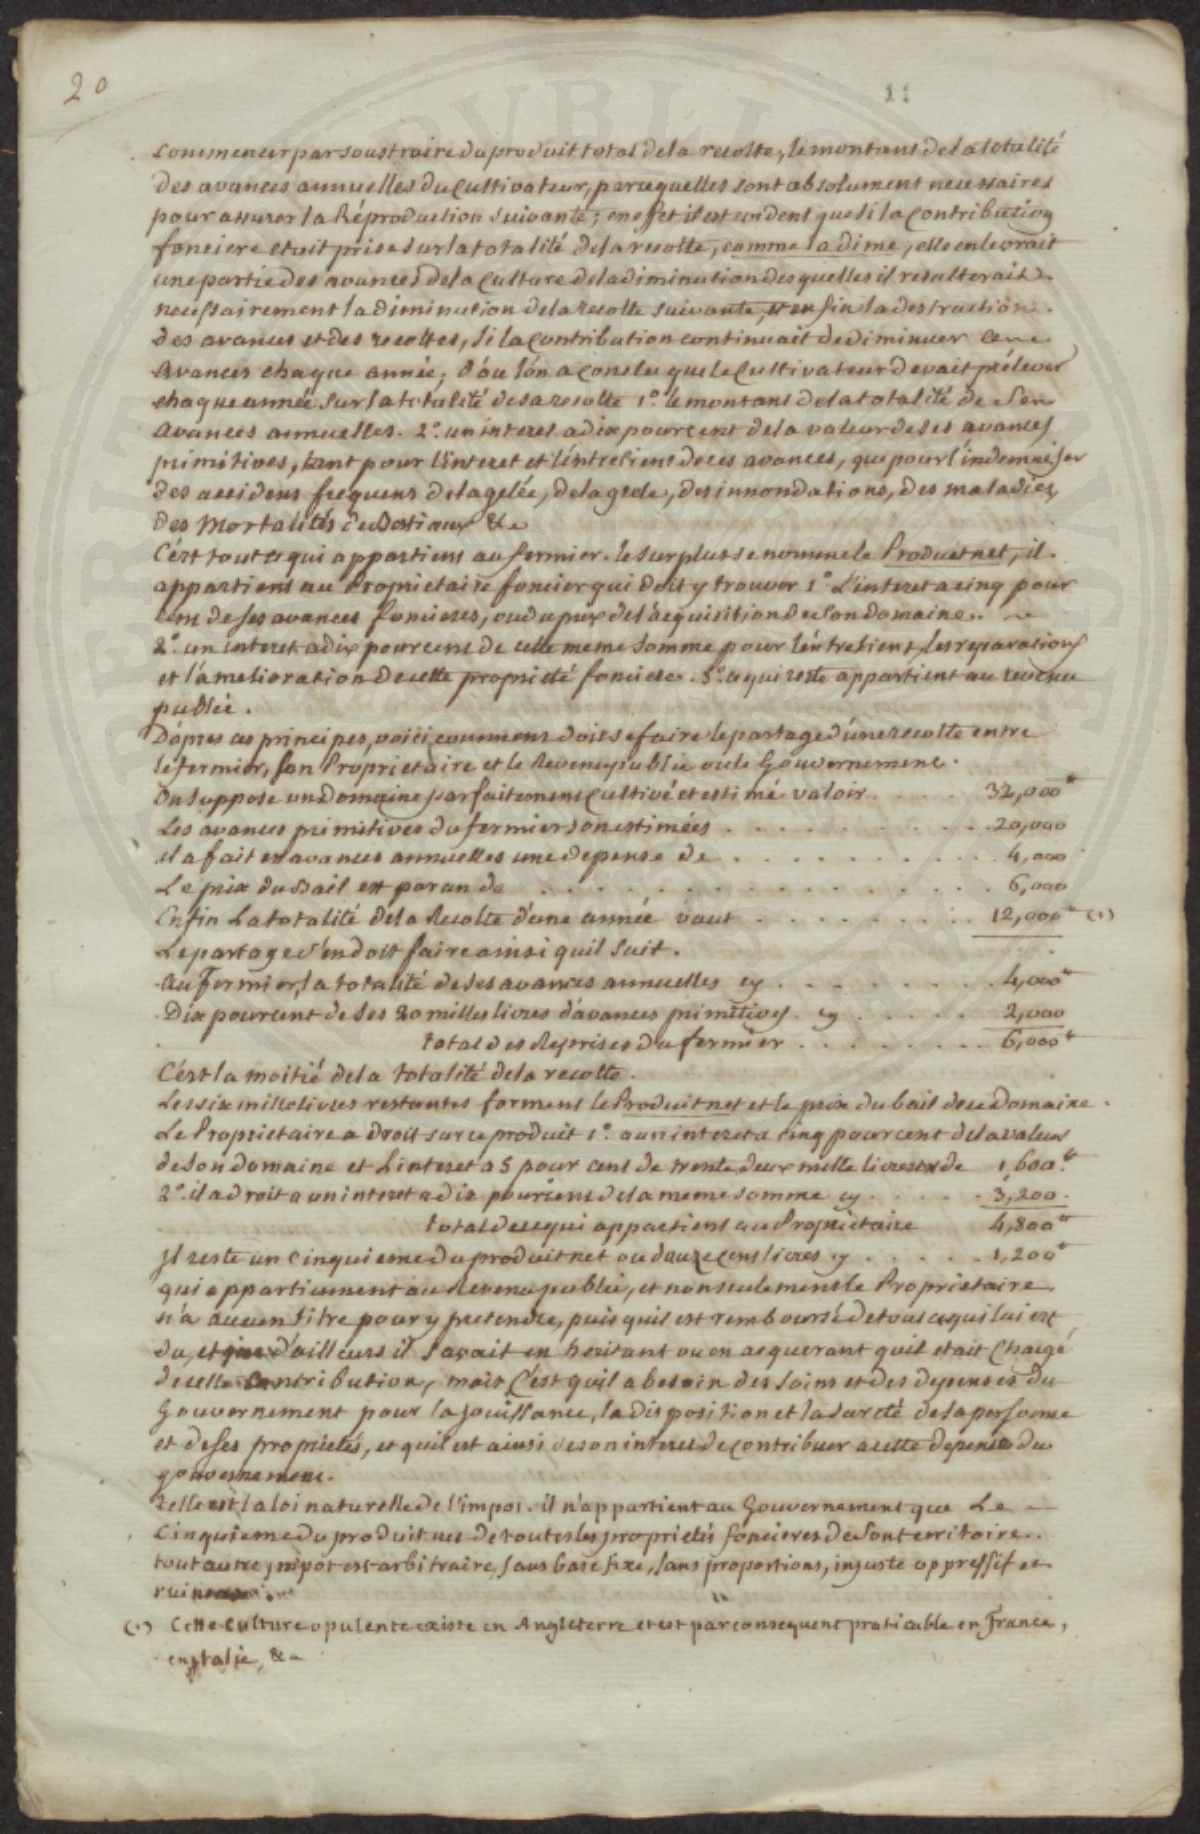 20
11
Commencer par soustraire du produit total de la recolte, le montant de la totalité
des avances annuelles du Cultivateur, parcequelles sont absolument necessaires
pour assurer la Réproduction Suivante; en effet il est evident que si la Contribution
fonciere etoit prise sur la totalité de la recolte, comme la dime, elle enleverait
une partie des avances de la Culture de la diminution desquelles il resulterait
necessairement la diminution de la recolte suivante, et enfin la destruction
des avances et des recoltes, si la Contribution continuait de diminuer ces
Avances chaque année; d'où l'on a conclu que le Cultivateur devait prélever
chaque année sur la totalité de sa recolte 1.° le montant de la totalité de Ses
Avances annuelles. 2.° un interet a dix pour cent de la valeur de ses avances
primitives, tant pour l'interet et l'entretient de ces avances, que pour l'indemniser
des accidens frequens de la gelée, de la grele, des innondations, des maladies,
des Mortalités de Bestiaux &c
C'est tout ce qui appartient au fermier. le surplus se nomme le Produit net, il
appartient au Proprietaire foncier qui doit y trouver 1.° L'interet a cinq pour
cent de ses avances foncieres, ou du prix de l'acquisition de Son domaine.
2.° un interet a dix pour cent de cette meme somme pour l'entretient, les reparations
et l'amelioration de cette propriété fonciere. 3.° ce qui reste appartient au revenu
public.
D'apres ces principes, voici comment doit se faire le partage d'une recolte entre
le fermier, son Proprietaire et le Revenu public ou le Gouvernement.
On suppose un Domaine parfaitement Cultivé et estimé valoir . . . . . 32,000
Les avances primitives du fermier sont estimées . . . . . . . . . . 20,000
il a fait en avances annuelles une depense de . . . . . . . . . . 4,000
Le prix du Bail est par an de . . . . . . . . . . . . . 6,000
Enfin La totalité de la Recolte d'une année vaut . . . . . . . . 12,000 (1)
Le partage s'en doit faire ainsi quil Suit.
Au Fermier, la totalité de ses avances annuelles cy . . . . . . . . 4,000
Dix pour cent de ses 20 milles livres d'avances primitives cy . . . . . 2,000
total des Reprises du fermier . . . . . . . . 6,000
C'est la moitié de la totalité de la recolte.
Les six mille livres restantes forment le Produit net et le prix du bail de ce Domaine.
Le Proprietaire a Droit sur ce produit 1.° a un interet a cinq pour cent de la valeur
de son domaine et L'interet a 5 pour cent de trente deux mille livres est de 1,600
2.° il a droit a un interet a dix pour cent de la meme somme cy . . . . . 3,200
total de ce qui appartient au Proprietaire 4,800
Il reste un cinquieme du produit net ou douze cens livres cy . . . . . 1,200
qui appartiennent au Revenu public, et non seulement le Proprietaire
n'a aucun titre pour y pretendre, puis quil est remboursé de tout ce qui lui est
du, et d'ailleurs il savait en heritant ou en acquerant quil etait Chargé
de cette Contribution, mais C'est quil a besoin des soins et des depenses du
Gouvernement pour la jouissance, la disposition et la sureté de sa personne
et de ses propriétés, et quil est ainsi de son interet de contribuer a cette depense du
gouvernement.
Telle est la loi naturelle de l'impot. il n'appartient au Gouvernement que Le
Cinquieme du produit net de toutes les proprietés foncieres de Son territoire.
tout autre impot est arbitraire, sans base fixe, sans proportions, injuste oppressif et
ruineux.
(1) Cette Culture opulente existe en Angleterre et est par consequent praticable en France,
en Italie, &c